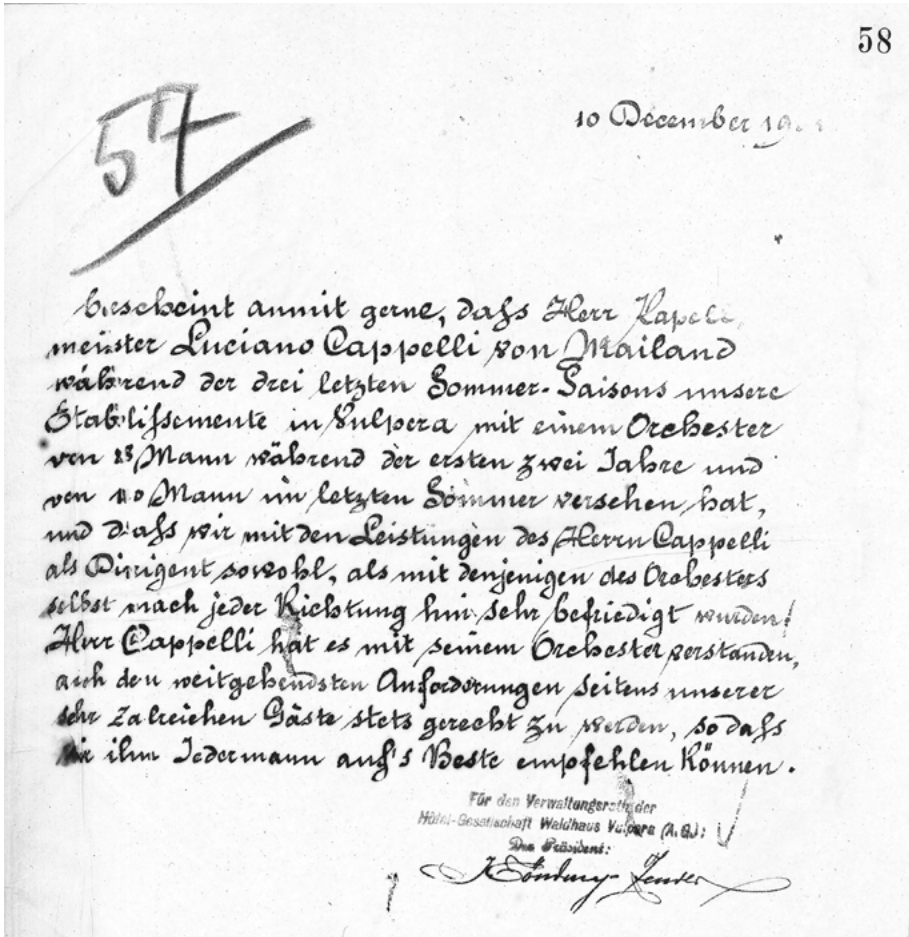 58
57
10 December
bescheint anmit gerne, daſs Herr Kapell
meister Luciano Cappelli von Mailand
während der drei letzten Sommer-Saisons unsere
Etabliſsemente in Vulpera mit einem Orchester
von Mann während der ersten zwei Jahre und
von Mann im letzten Sommer versehen hat,
und daſs wir mit den Leistungen des Herrn Cappelli
als Dirigent sowohl, als mit denjenigen des Orchesters
selbst nach jeder Richtung hin sehr befriedigt wurden!
Herr Cappelli hat es mit seinem Orchester verstanden,
auch den weitgehendsten Anforderungen seitens unserer
sehr zalreichen Gäste stets gerecht zu werden, so daſs
wir ihn Jedermann auf's Beste empfehlen können.
Für den Verwaltungsrath der
Hôtel-Gesellschaft Waldhaus Vulpera (A.G.):
Der Präsident: